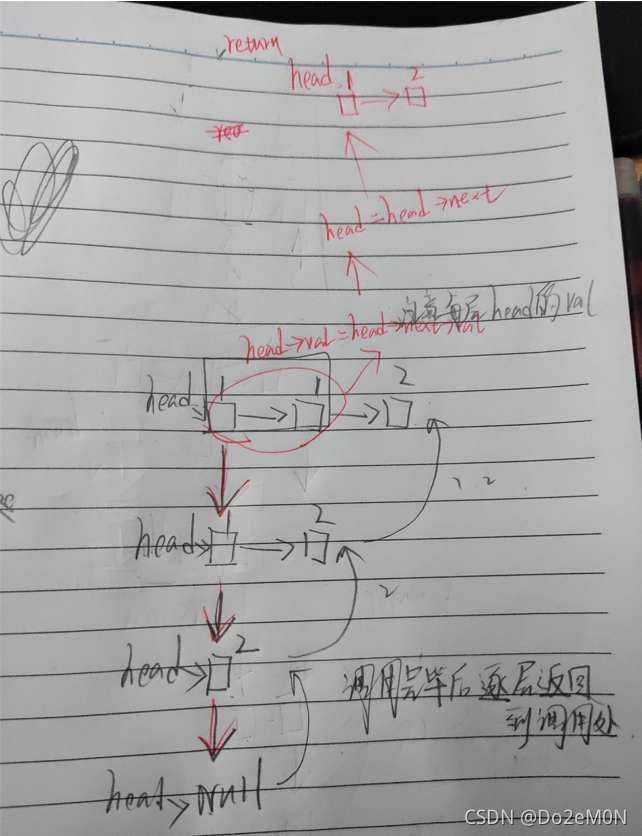 return
head
1 2
head = head→next
注意每层head的val
head→val = head→next→val
1 1 2
head
1 2
head
2
2
head
调用完毕后逐层返回
到调用处
head→null
CSDN @Do2eM0N